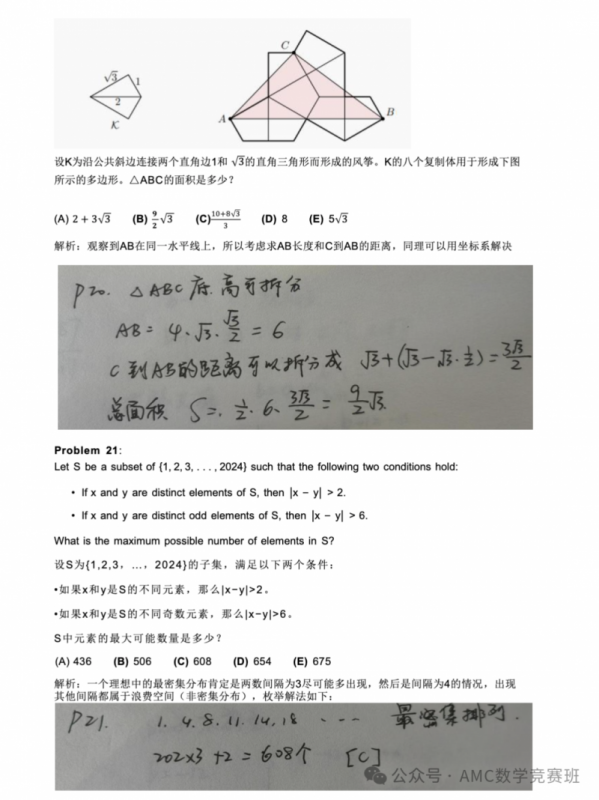 C
√3
1
2
K
A
B
设K为沿公共斜边连接两个直角边1和 √3的直角三角形而形成的风筝。K的八个复制体用于形成下图
所示的多边形。△ABC的面积是多少？
(A) 2 + 3√3 (B) 9/2 √3 (C) (10+8√3)/3 (D) 8 (E) 5√3
解析：观察到AB在同一水平线上，所以考虑求AB长度和C到AB的距离，同理可以用坐标系解决
P20. △ABC 底.高可拆分
AB = 4·√3·√3/2 = 6
C到AB的距离可以拆分成 √3+(√3-√3·1/2)=3√3/2
总面积 S = 1/2·6·3√3/2 = 9/2 √3.
Problem 21:
Let S be a subset of {1, 2, 3, . . . , 2024} such that the following two conditions hold:
• If x and y are distinct elements of S, then |x − y| > 2.
• If x and y are distinct odd elements of S, then |x − y| > 6.
What is the maximum possible number of elements in S?
设S为{1,2,3，…，2024}的子集，满足以下两个条件：
•如果x和y是S的不同元素，那么|x−y|>2。
•如果x和y是S的不同奇数元素，那么|x−y|>6。
S中元素的最大可能数量是多少？
(A) 436 (B) 506 (C) 608 (D) 654 (E) 675
解析：一个理想中的最密集分布肯定是两数间隔为3尽可能多出现，然后是间隔为4的情况，出现
其他间隔都属于浪费空间（非密集分布），枚举解法如下：
P21. 1. 4. 8. 11. 14. 18 ... 最密集排列.
202×3 +2 = 608个 [C]
公众号 · AMC数学竞赛班